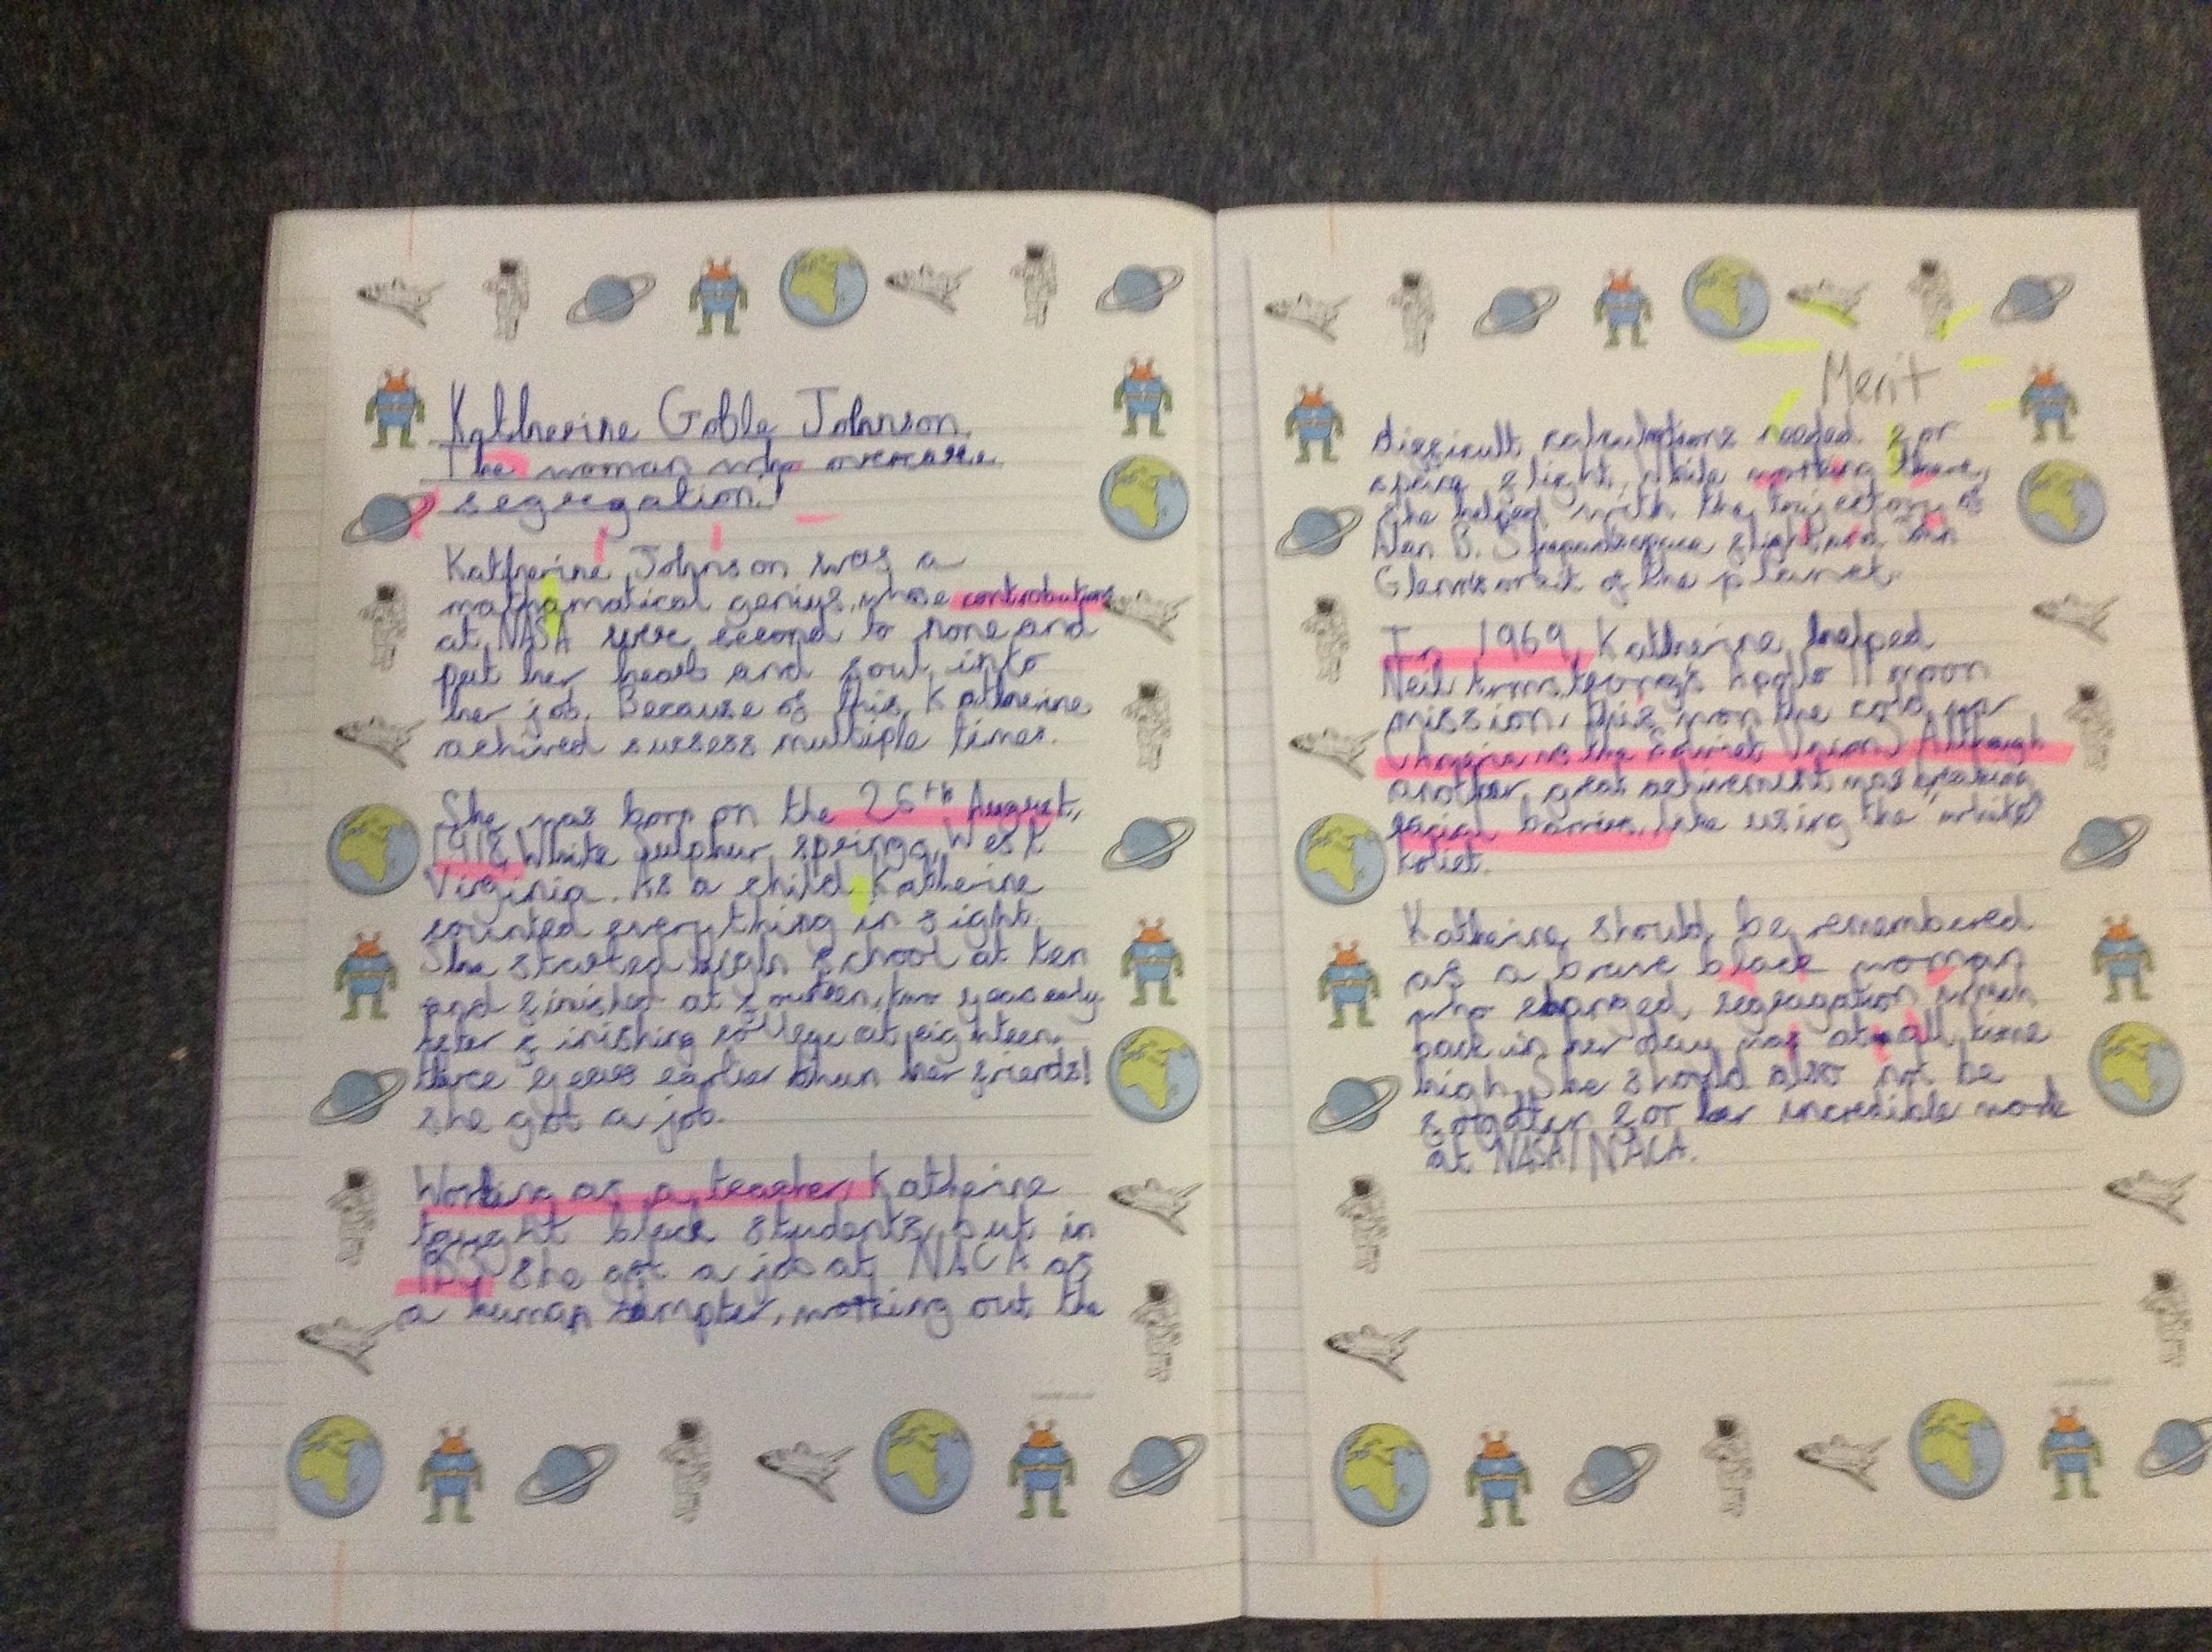 Katherine Goble Johnson
The woman who overcame
segregation!
Katherine Johnson was a
mathamatical genius, whose contrabutions
at NASA were second to none and
put her heart and soul into
her job. Because of this, Katherine
achived sucsess multiple times.
She was born on the 26th August,
1918, White Sulphur springs, West
Virginia. As a child Katherine
counted everything in sight.
She started high school at ten
and finished at fourteen, two years early
finishing college at eighteen,
three years earlier than her friends!
she got a job.
Working as a teacher, Katherine
taught black students, but in
she got a job at NACA as
a human working out the
Merit
difficult calculations needed for
space flight, while working there,
she helped with the trajectory of
Alan B. flight and
Glenn's orbit of the planet.
In 1969, Katherine helped
Neil Armstrong's Apollo 11 moon
mission, this won the cold war
the Soviet Union) Although
another great achivement was breaking
racial like using the 'white'
Katherine should be remembered
as a brave black woman
who changed segregation which
back in her day was at all time
high. She should also not be
for her incredible work
at NASA/NACA.